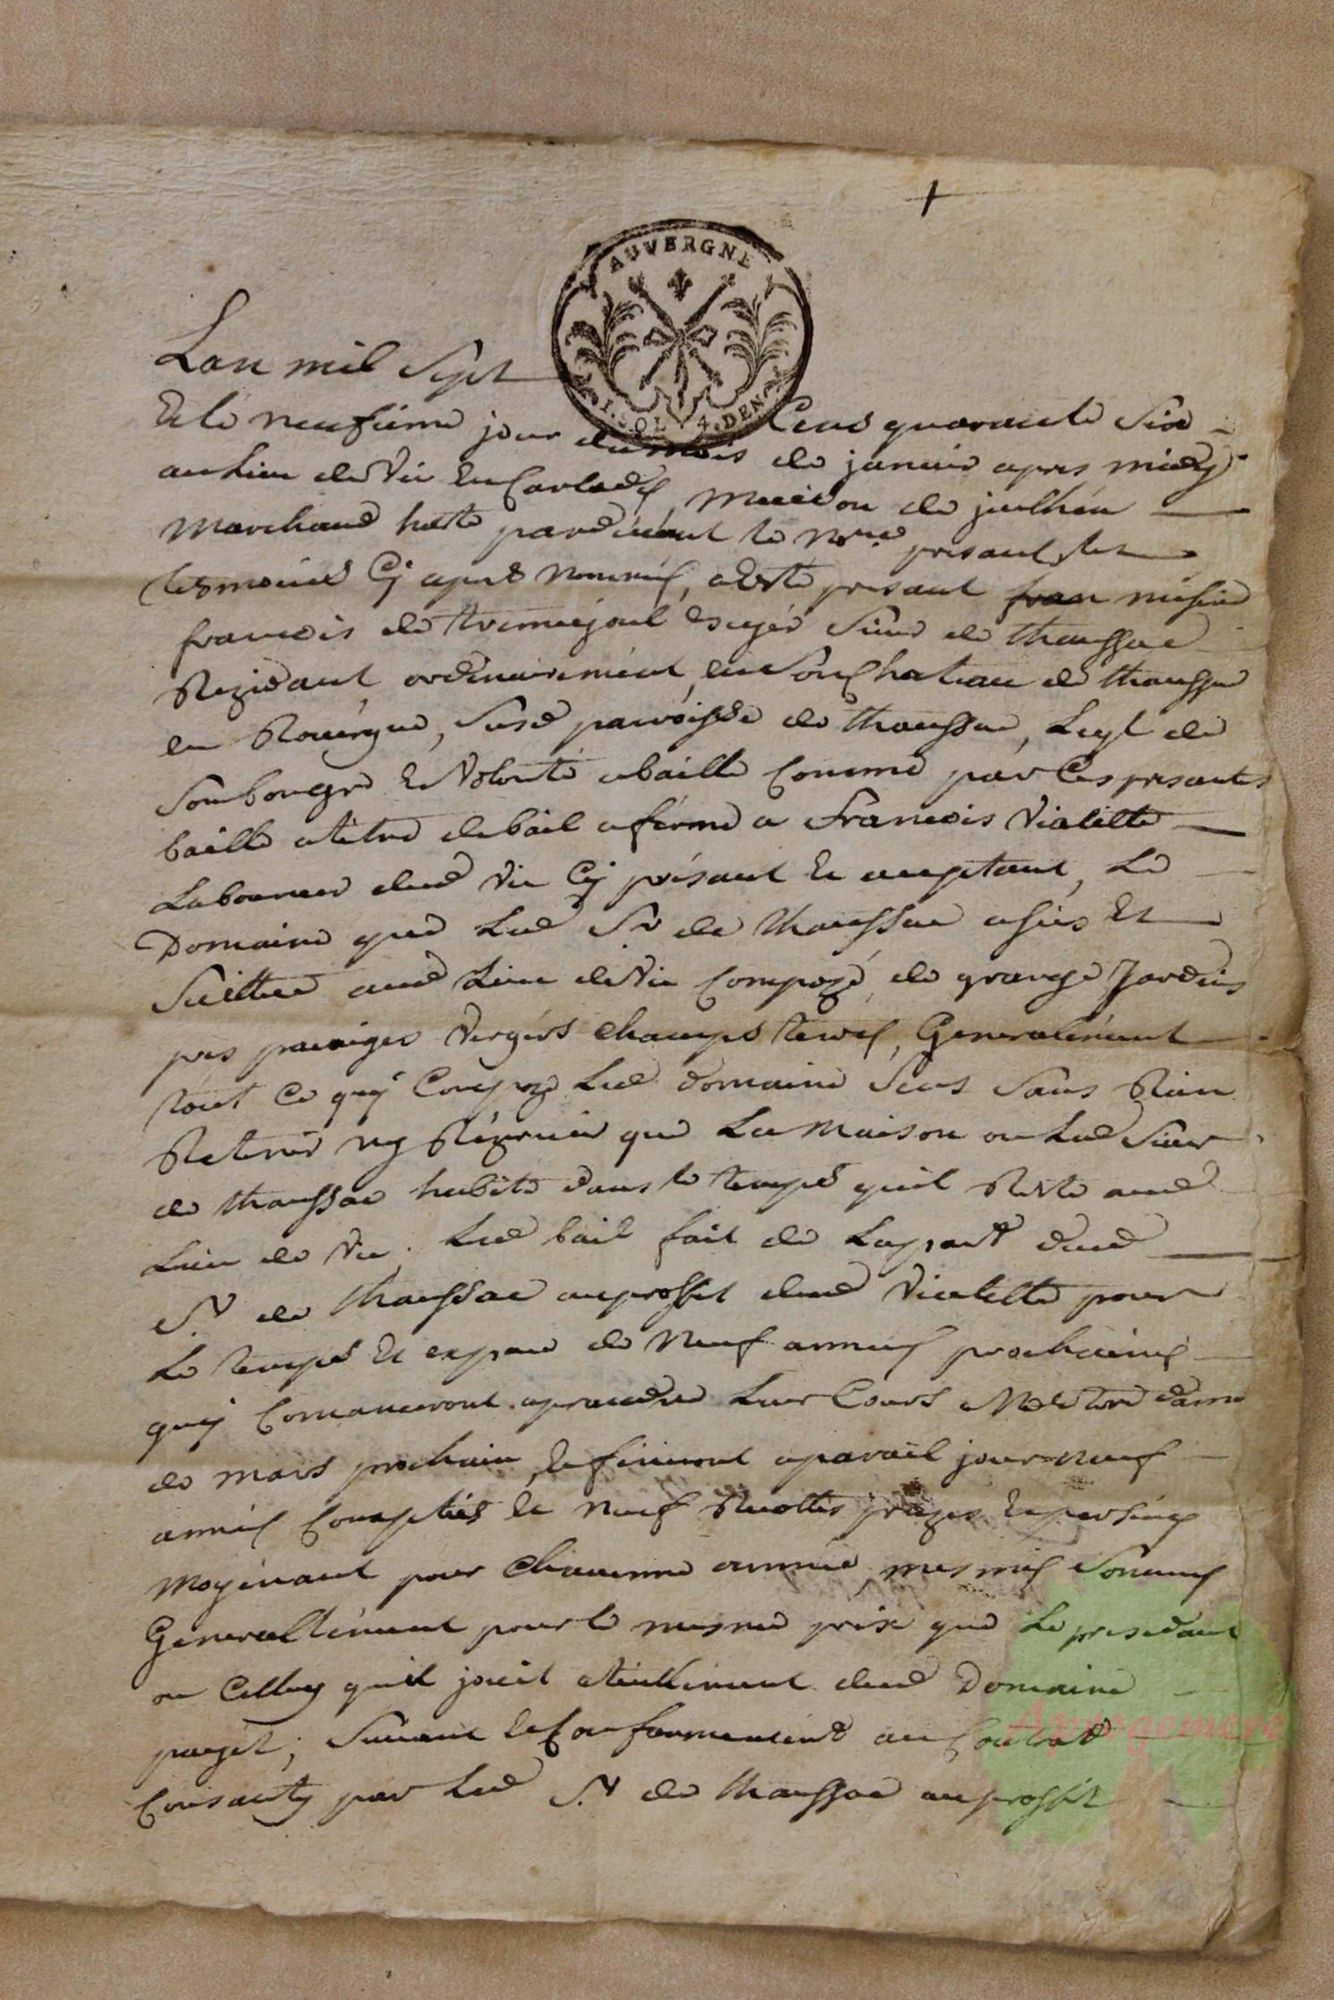 AUVERGNE
1. SOL 4. DEN
Lan mil sept
Cens quarante six
Et le neufieme jour du mois de janvier apres midy
au lieu de Vic En Carladés, maison de julhen
marchand hoste pardevant le nore. presant, les
tesmoins Cy apres nommés, a Esté presant fran mesire
francois de Tremejoul escuyer Sieur de thaussac
Rezidant ordinairement, en Son Chateau de thaussac
en Rouergue, Susd paroisse de thaussac, Leql de
Son bon gré Et Volonté abaillé Comme par Ces presantes
baille a titre de bail a ferme a Francois Vialette
Laboureur dud Vic Cy présant Et aceptant, Le
Domaine que Led Sr de thaussac asiis Et
Scittué aud Lieu de Vic Compozé, de grange Jardeins
pres pacaiges Vergérs Champs terres, Generalement
tout Ce quy Compoze Led domaine Sens Sans Rien
Retenir ny Rézerver que La maison ou Led Sieur
de thaussac habite dans le temps quil Reste aud
Lieu de Vic. Led bail fait de La part dud
Sr de thaussac au proffit dud Vialette pour
Le temps Et espace de neuf années prochaines
quy Comanceront a prandre Leur Cours a Notre dame
de mars prochain, Et finiront a parail jour neuf
années Complies Et neuf Recottes prizes Et perseues
moyénant pour Chacunne année mesmes Sommes
Generallement pour le mesme prix que Le presedant
ou Celluy quil jouit atuellement dud Domaine
payet, Suivant Et Conformement au Contrat
Consanty par Led Sr de thaussac au proffit
Apprgemere